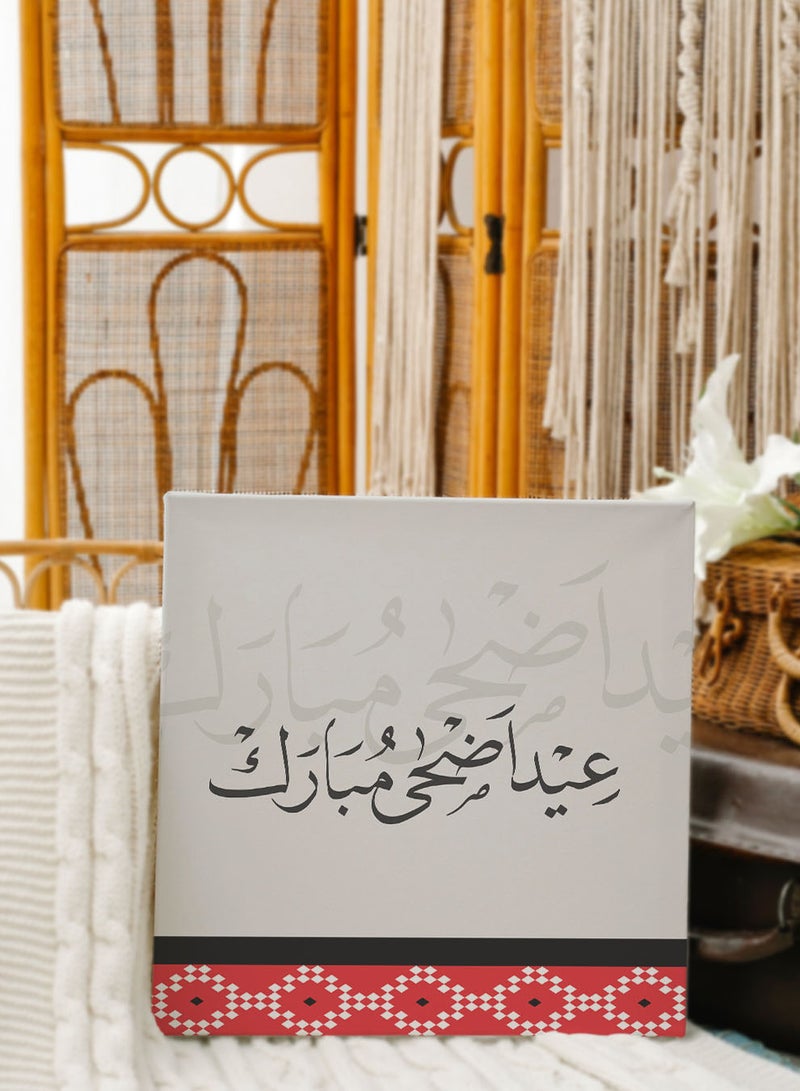 عِيْد اَضْحى مُبَارَك
عِيْد اَضْحى مُبَارَكْ